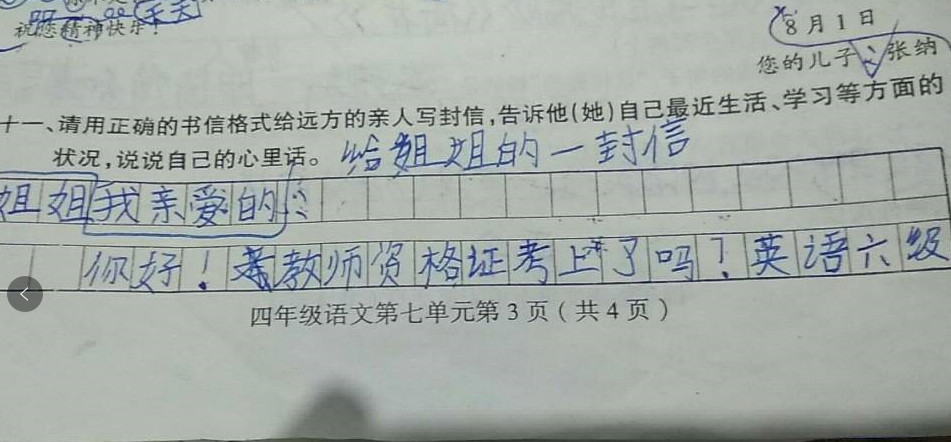 祝您精神快乐!
8月1日
您的儿子:张纳
十一、请用正确的书信格式给远方的亲人写封信,告诉他(她)自己最近生活、学习等方面的
状况,说说自己的心里话。 给姐姐的一封信
姐姐我亲爱的:
你好!教师资格证考上了吗?英语六级
四年级语文第七单元第3页(共4页)